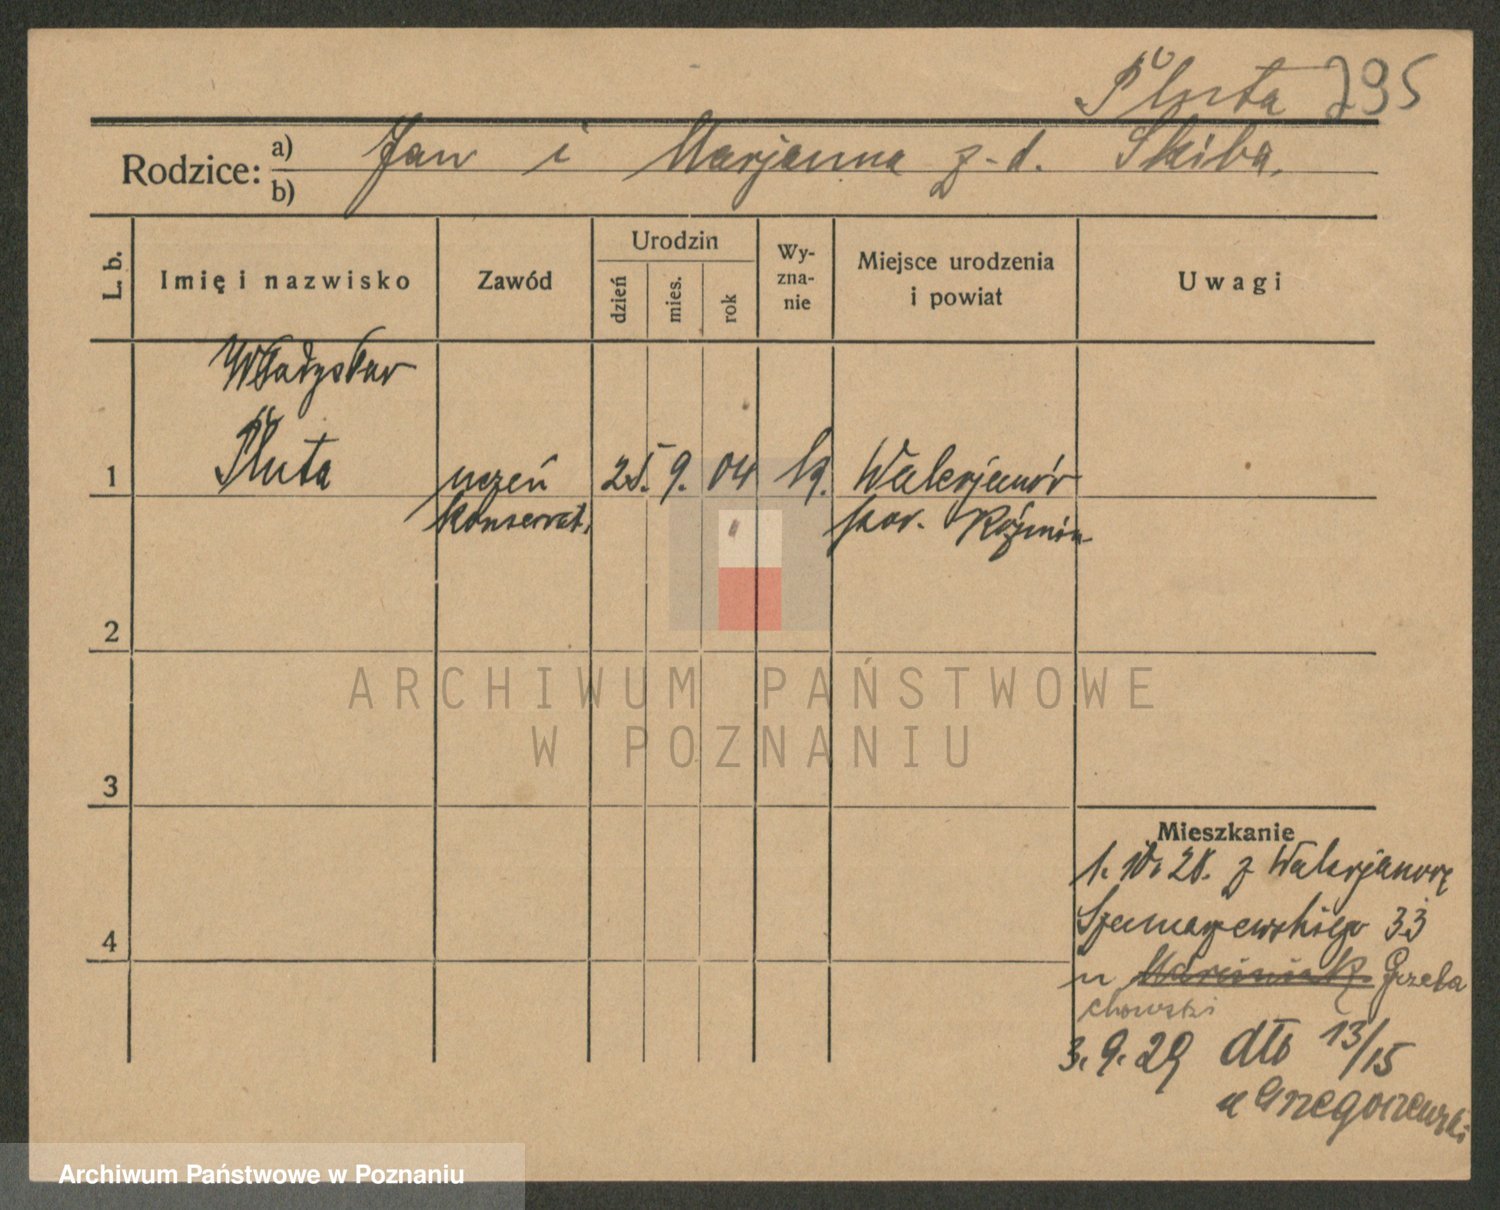 Pluta 795
Rodzice: a) b) Jan i Marjanna z-d. Skiba.
L. b.
Imię i nazwisko
Zawód
Urodzin
dzień
mies.
rok
Wy-
zna-
nie
Miejsce urodzenia
i powiat
Uwagi
Władysław
1 Pluta uczeń 25. 9. 04 Walerjanów
konserwat. pow. Koźmin
2
ARCHIWUM PAŃSTWOWE
W POZNANIU
3
Mieszkanie
1. 10. 28. z Walerjanowa
4 Szamarzewskiego 33
u Grzeba
chowski
3. 9. 29 dto 13/15
u Grzegorzewski
Archiwum Państwowe w Poznaniu